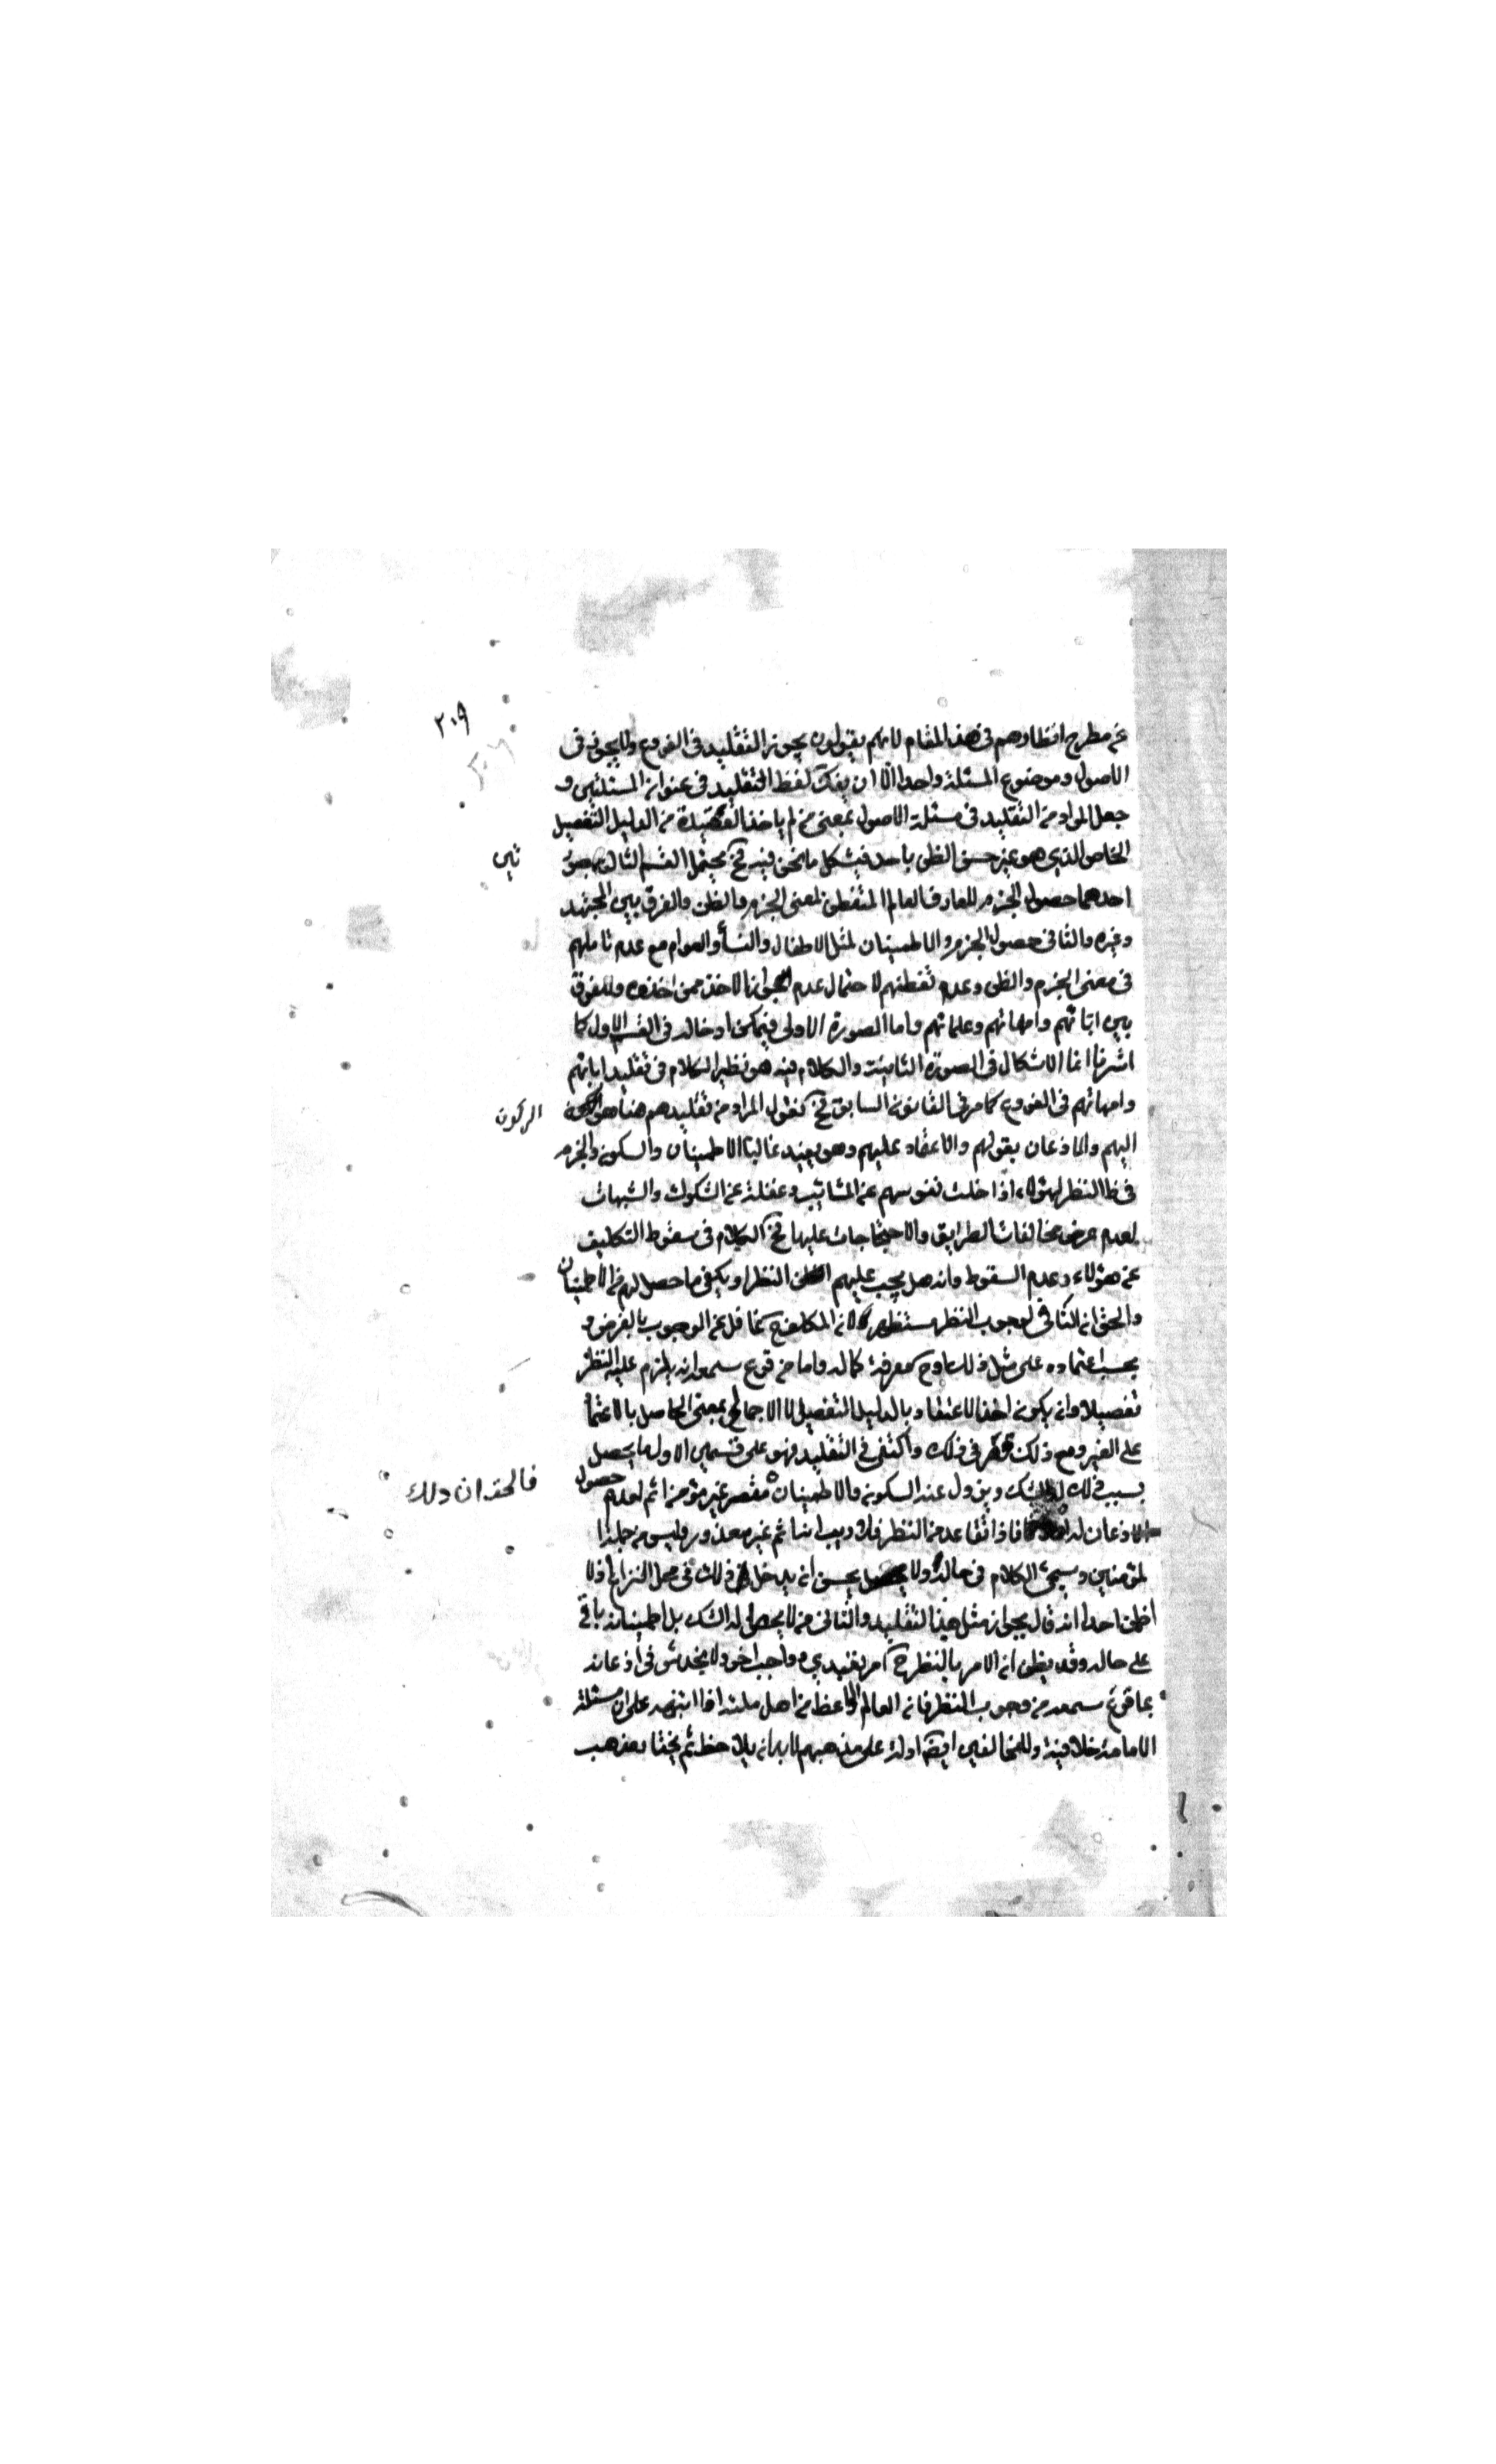 ٢٠٩
عن مطرح انظارهم فى هذه المقام لانهم يقولون يجوز التقليد فى الفروع ولا يجوز فى
الاصول وموضوع المسئلة واحد الا ان يفك لفظ التقليد فى عنوان المسئلتين و
جعل المراد من التقليد فى مسئلة الاصول بمعنى من لم ياخذ العقيدة من الدليل التفصيل
الخاص الذى هو غير حسن الظن باحد فيشكل ما نحن فيه فح يحتمل القسم الثانى
ثين
احدهما حصول الجزم للعارف العالم المتفطن لمعنى الجزم والظن والفرق بين المجتهد
وغيره والثانى حصول الجزم والاطمينان لمثل الاطفال والنساء والعوام مع عدم تاملهم
فى معنى الجزم والظن وعدم تفطنهم لاحتمال عدم جواز الاخذ ممن اخذوه وللفرق
بين ابائهم وامهاتهم وعلمائهم واما الصورة الاولى فيمكن ادخاله فى القسم الاول كما
اشرنا انما الاشكال فى الصورة الثانية والكلام فيه هو نظير الكلام فى تقليد ابائهم
وامهاتهم فى الفروع كما مر فى القانون السابق فح نقول المراد من تقليدهم هنا هو
الركون
اليهم والاذعان بقولهم والاعتماد عليهم وهو يفيد غالبا الاطمينان والسكون والجزم
فى ظا النظر لهؤلاء اذا خلت نفوسهم عن المشائبة وغفلة عن الشكوك والشبهات
لعدم عرض مخالفات الطرايق والاحتجاجات عليها فح الكلام فى سقوط التكليف
عن هؤلاء وعدم السقوط وانه هل يجب عليهم النظر او يكفى ما حصل لهم من الاطمينان
والحق ان النافى لوجوب النظر مستظهر لان المكلف ح غافل عن الوجوب بالفرض و
يحسب اعتماده على مثل ذلك معرفة كماله واما من قرع سمعه انه يلزم عليه النظر
تفصيلا وان يكون اخذ الاعتقاد بالدليل التفصيلى لا الاجمالى بمعنى الحاصل بالاعتما
على الغير ومع ذلك قصر فى ذلك واكتفى فى التقليد فهو على قسمين الاول ما يحصل
بسبب ذلك له الشك ويزول عنه السكون والاطمينان مقصر غير مؤمن اثم لعدم حصول
فالحق ان ذلك
الاذعان له فاذا تقاعد من النظر فلا ريب انه اثم غير معذور وليس من جملة
المؤمنين وسيجئ الكلام فى حاله ولا يحسن ان يدخل ذلك فى محل النزاع اذ لا
اظن احدا انه قال بجواز مثل هذا التقليد والثانى من لا يحصل له الشك بل اطمينانه باق
على حاله وقد يظن ان الامر بالنظر ح امر تعبدى وواجب اخر ولا يخدش فى اذعانه
بما قرع سمعه من وجوب النظر فان العالم الواعظ من اهل ملته اذا انتبهه على ان مسئلة
الامامة خلافية وللمخالفين ايضا ادلة على مذهبهم لا بد ان يلاحظ ثم يختار مذهب